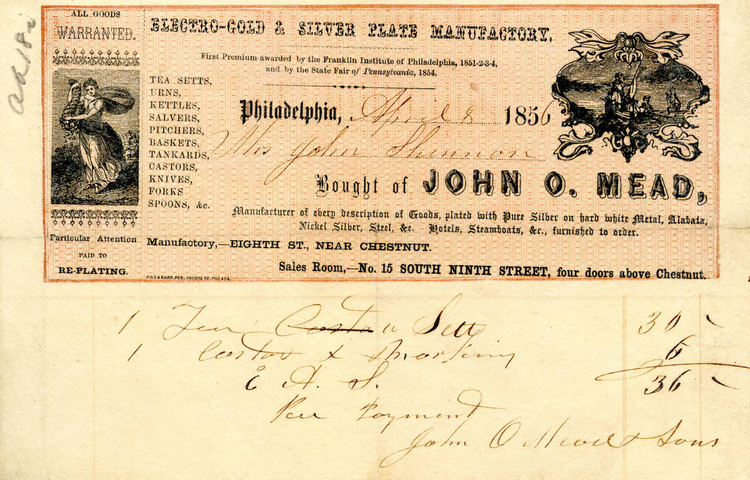 ALL GOODS
WARRANTED.
ELECTRO-GOLD & SILVER PLATE MANUFACTORY,
First Premium awarded by the Franklin Institute of Philadelphia, 1851-2-3-4,
and by the State Fair of Pennsylvania, 1854.
TEA SETTS,
URNS,
KETTLES,
SALVERS,
PITCHERS,
BASKETS,
TANKARDS,
CASTORS,
KNIVES,
FORKS
SPOONS, &c.
Philadelphia, April 8 1856
Mrs John Shennon
Bought of JOHN O. MEAD,
Manufacturer of every description of Goods, plated with Pure Silver on hard white Metal, Alabata,
Nickel Silver, Steel, &c. Hotels, Steamboats, &c., furnished to order.
Particular Attention
PAID TO
RE-PLATING.
Manufactory,—EIGHTH ST., NEAR CHESTNUT.
Sales Room,—No. 15 SOUTH NINTH STREET, four doors above Chestnut.
1 Sett 30
1 Castor & Marking 6
A. S. 36
Payment
John O Mead & Sons